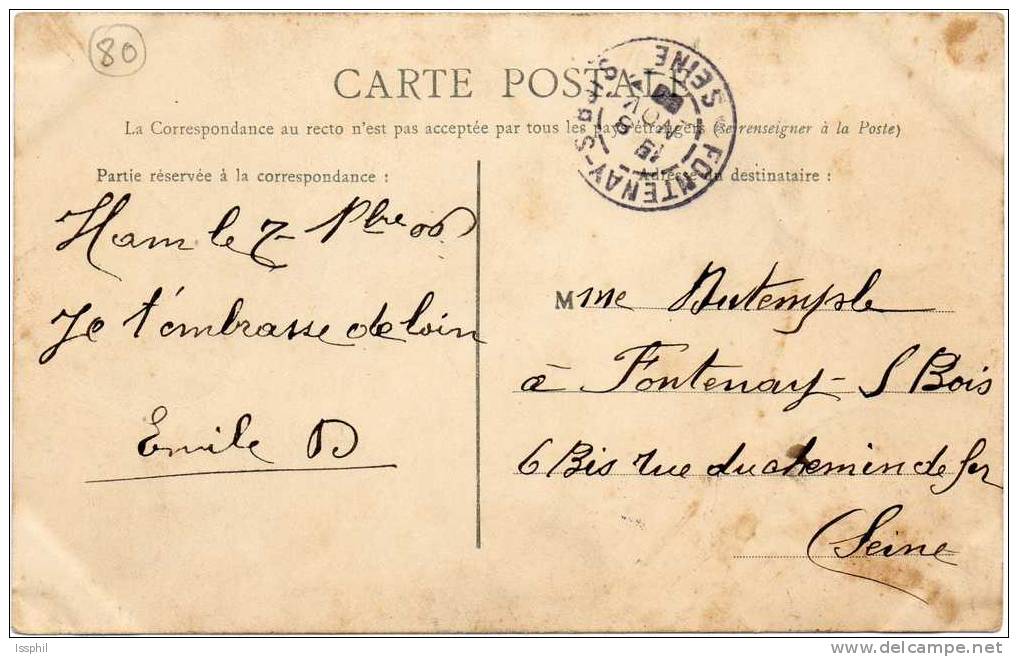 80
CARTE POSTALE
La Correspondance au recto n'est pas acceptée par tous les pays étrangers (se renseigner à la Poste)
Partie réservée à la correspondance :
Ham le 7 9bre 06
Je t'embrasse de loin
Emile D
FONTENAY-S-BOIS SEINE
NOV
Adresse du destinataire :
Mme Dutemple
à Fontenay - S Bois
6 Bis rue du chemin de fer
(Seine
Issphil
www.delcampe.net